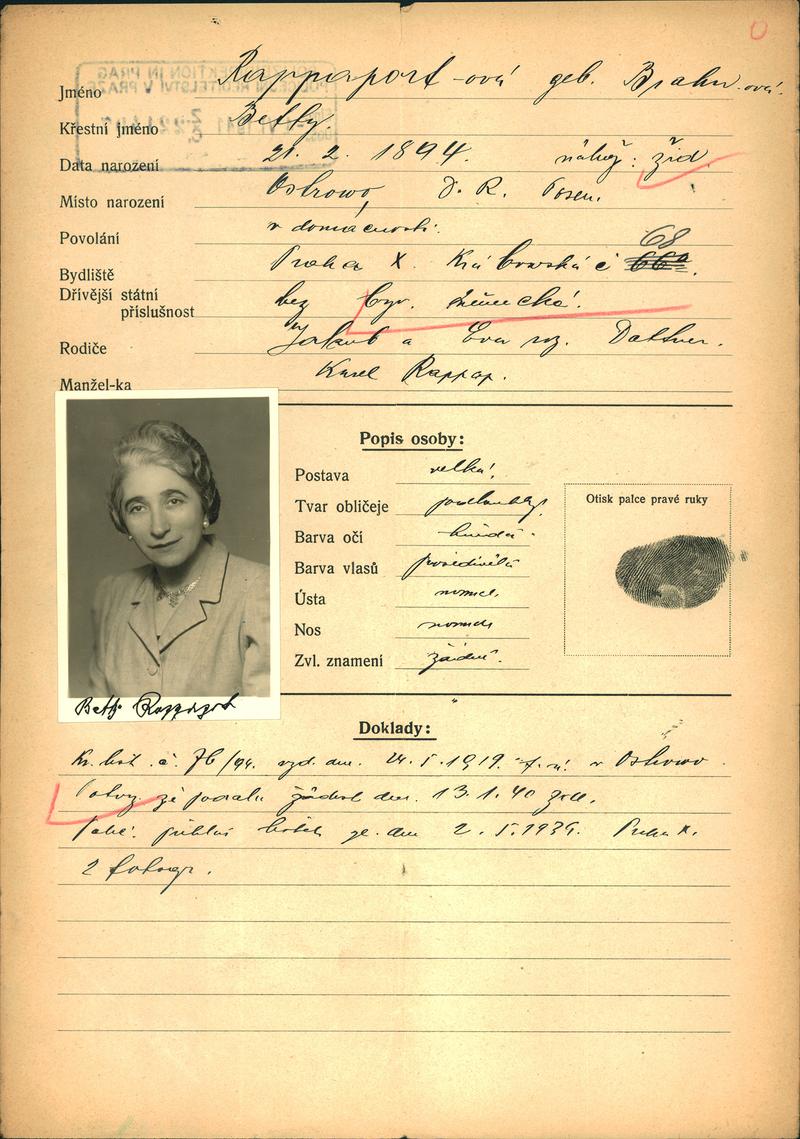 Jméno Rappaport-ová geb. Brahn-ová.
Křestní jméno Betty.
Data narození 21. 2. 1894. nábož: žid.
Místo narození Ostrowo, D. R. Posen.
Povolání v domácnosti.
Bydliště Praha X. Královská č 68
Dřívější státní příslušnost bez býv. německá.
Rodiče Jakub a Eva roz. Dattner.
Manžel-ka Karel Rappap.
Popis osoby:
Postava velká.
Tvar obličeje podlouhlý.
Barva očí hnědá.
Barva vlasů prošedivělá
Ústa normal.
Nos normal.
Zvl. znamení žádné.
Otisk palce pravé ruky
Betty Rappaport
Doklady:
Kř. list č. 76/94. vyd. dne. 24. 5. 1919. v Ostrowo.
Potvrz. že podala žádost dne. 13. 1. 40
přihl. lístek ze dne 2. 5. 1939. Praha X.
2 fotogr.